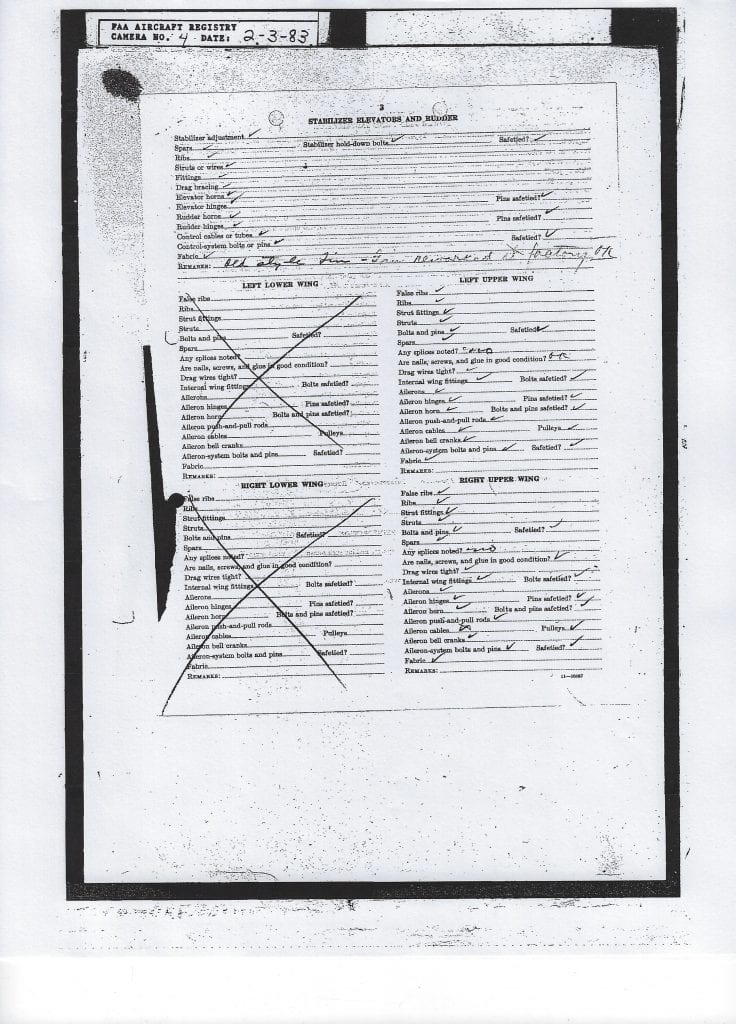 FAA AIRCRAFT REGISTRY
CAMERA NO. 4 DATE: 2-3-83
3
STABILIZER ELEVATORS AND RUDDER
Stabilizer adjustment ✓
Spars ✓ Stabilizer hold-down bolts ✓ Safetied? ✓
Ribs ✓
Struts or wires ✓
Fittings ✓
Drag bracing ✓
Elevator horns ✓ Pins safetied? ✓
Elevator hinges
Rudder horns ✓ Pins safetied? ✓
Rudder hinges ✓
Control cables or tubes ✓
Control-system bolts or pins ✓ Safetied? ✓
Fabric ✓
REMARKS: Old style fin - factory OK
LEFT LOWER WING
False ribs
Ribs
Strut fittings
Struts
Bolts and pins Safetied?
Spars
Any splices noted?
Are nails, screws, and glue in good condition?
Drag wires tight?
Internal wing fittings Bolts safetied?
Ailerons
Aileron hinges Pins safetied?
Aileron horn Bolts and pins safetied?
Aileron push-and-pull rods
Aileron cables Pulleys
Aileron bell cranks
Aileron-system bolts and pins Safetied?
Fabric
REMARKS:
LEFT UPPER WING
False ribs ✓
Ribs ✓
Strut fittings ✓
Struts ✓
Bolts and pins ✓ Safetied ✓
Spars ✓
Any splices noted? no
Are nails, screws, and glue in good condition? OK
Drag wires tight? ✓
Internal wing fittings ✓ Bolts safetied? ✓
Ailerons ✓
Aileron hinges ✓ Pins safetied? ✓
Aileron horn ✓ Bolts and pins safetied? ✓
Aileron push-and-pull rods ✓
Aileron cables ✓ Pulleys ✓
Aileron bell cranks ✓
Aileron-system bolts and pins ✓ Safetied? ✓
Fabric ✓
REMARKS:
RIGHT LOWER WING
False ribs
Ribs
Strut fittings
Struts
Bolts and pins Safetied?
Spars
Any splices noted?
Are nails, screws, and glue in good condition?
Drag wires tight?
Internal wing fittings Bolts safetied?
Ailerons
Aileron hinges Pins safetied?
Aileron horn Bolts and pins safetied?
Aileron push-and-pull rods
Aileron cables Pulleys
Aileron bell cranks
Aileron-system bolts and pins Safetied?
Fabric
REMARKS:
RIGHT UPPER WING
False ribs ✓
Ribs ✓
Strut fittings ✓
Struts ✓
Bolts and pins ✓ Safetied? ✓
Spars ✓
Any splices noted? no
Are nails, screws, and glue in good condition? ✓
Drag wires tight? ✓
Internal wing fittings ✓ Bolts safetied? ✓
Ailerons ✓
Aileron hinges ✓ Pins safetied? ✓
Aileron horn ✓ Bolts and pins safetied? ✓
Aileron push-and-pull rods ✓
Aileron cables Pulleys ✓
Aileron bell cranks ✓
Aileron-system bolts and pins ✓ Safetied? ✓
Fabric ✓
REMARKS: